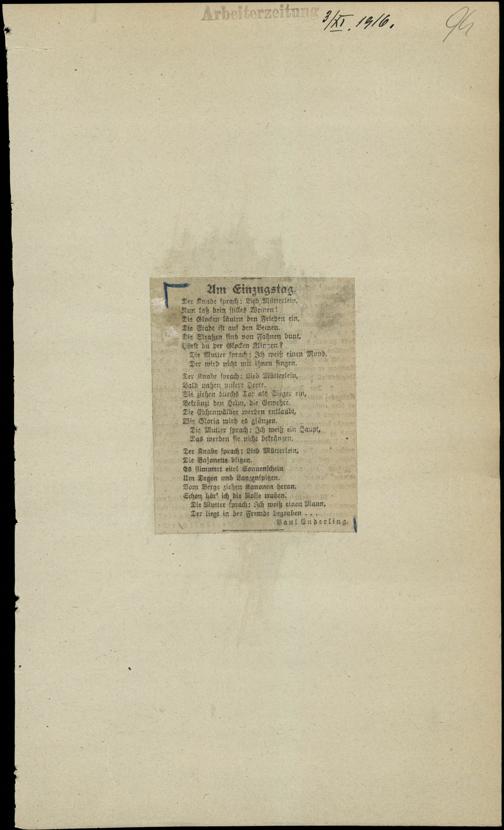 Arbeiterzeitung
3/XI. 1916.
94
Am Einzugstag.
Der Knabe sprach: Lieb Mütterlein,
Nun laß dein stilles Weinen!
Die Glocken läuten den Frieden ein,
Die Stadt ist auf den Beinen.
Die Straßen sind von Fahnen bunt,
Hörst du der Glocken Klingen?
Die Mutter sprach: Ich weiß einen Mund,
Der wird nicht mit ihnen singen.
Der Knabe sprach: Lieb Mütterlein,
Bald nahen unsere Heere.
Sie ziehen durchs Tor als Sieger ein,
Bekränzt den Helm, die Gewehre.
Die Eichenwälder werden entlaubt,
Wie Gloria wird es glänzen.
Die Mutter sprach: Ich weiß ein Haupt,
Das werden sie nicht bekränzen.
Der Knabe sprach: Lieb Mütterlein,
Die Bajonette blitzen.
Es flimmert eitel Sonnenschein
Um Degen und Lanzenspitzen.
Vom Berge ziehen Kanonen heran,
Schon hör' ich die Rosse traben.
Die Mutter sprach: Ich weiß einen Mann,
Der liegt in der Fremde begraben . . .
Paul Enderling.